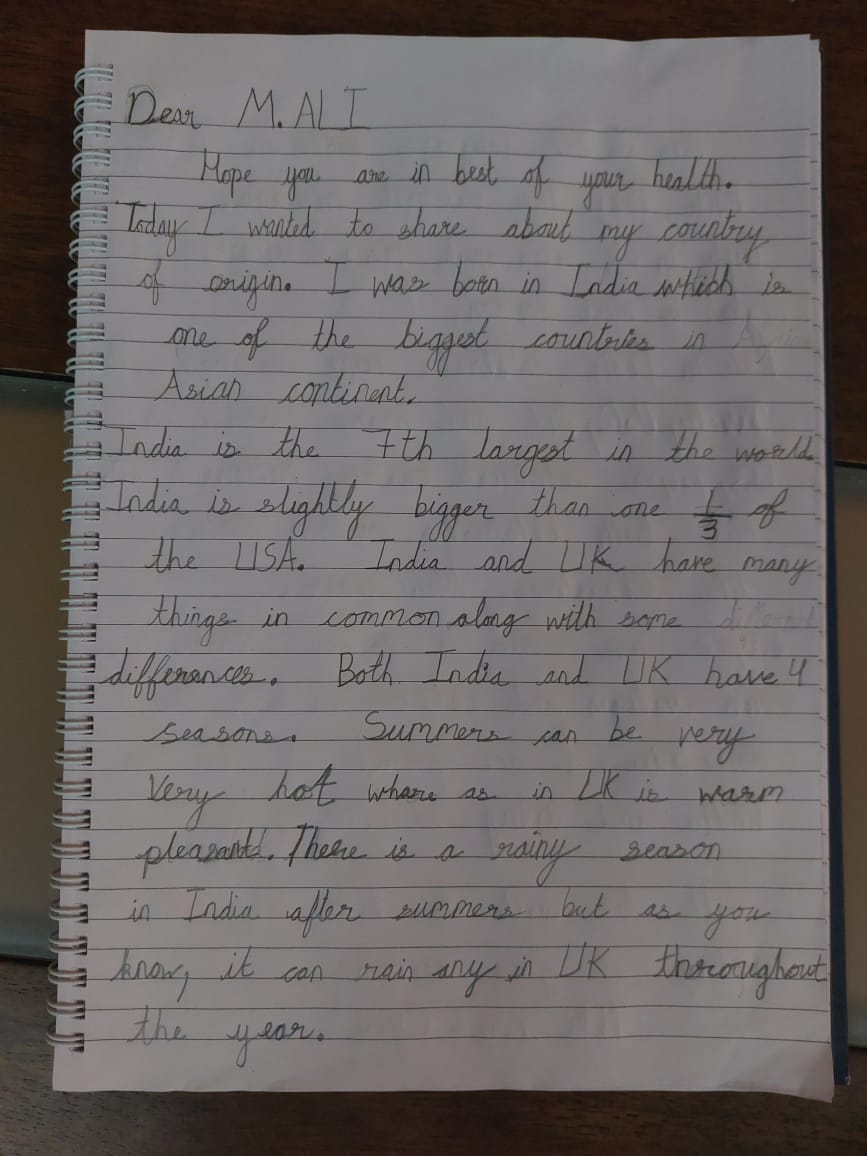 Dear M. ALI
Hope you are in best of your health.
Today I wanted to share about my country
of origin. I was born in India which is
one of the biggest countries in
Asian continent.
India is the 7th largest in the world.
India is slightly bigger than one 1/3 of
the USA. India and UK have many
things in common along with some different
differances. Both India and UK have 4
seasons. Summers can be very
very hot whare as in UK is warm
pleasant. There is a rainy season
in India after summers but as you
know, it can rain any in UK throughout
the year.